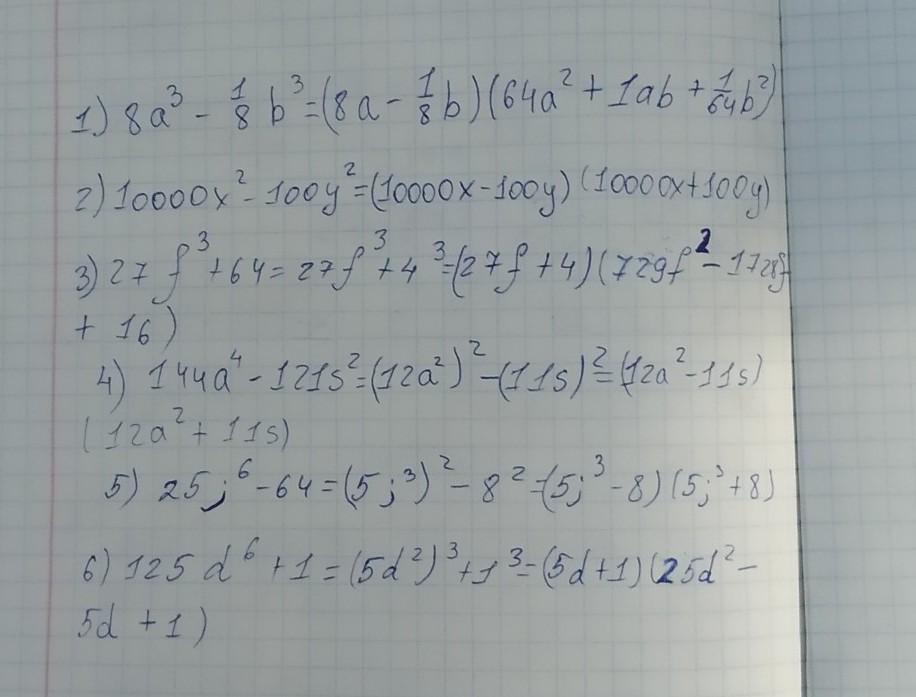 1) 8a³ - 1/8 b³ = (8a - 1/8 b)(64a² + 1ab + 1/64 b²)
2) 10000x² - 100y² = (10000x - 100y)(10000x + 100y)
3) 27f³ + 64 = 27f³ + 4³ = (27f + 4)(729f² - 1728f
+ 16)
4) 144a⁴ - 121s² = (12a²)² - (11s)² = (12a² - 11s)
(12a² + 11s)
5) 25j⁶ - 64 = (5j³)² - 8² = (5j³ - 8)(5j³ + 8)
6) 125d⁶ + 1 = (5d²)³ + 1³ = (5d + 1)(25d² -
5d + 1)